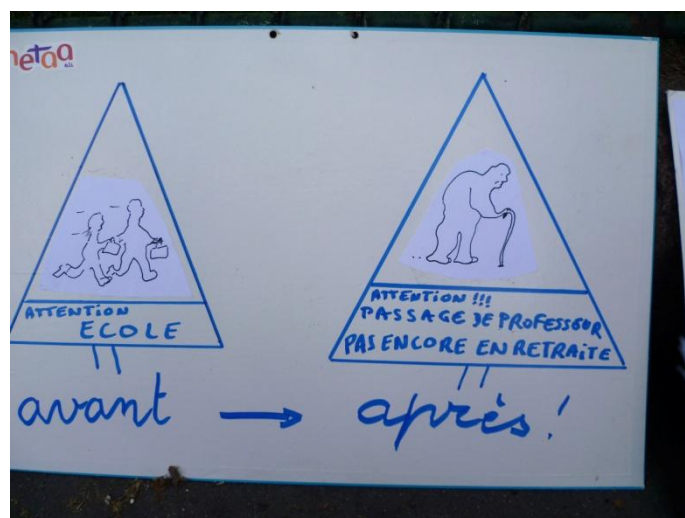 ATTENTION
ECOLE
avant
ATTENTION !!!
PASSAGE DE PROFESSEUR
PAS ENCORE EN RETRAITE
après !